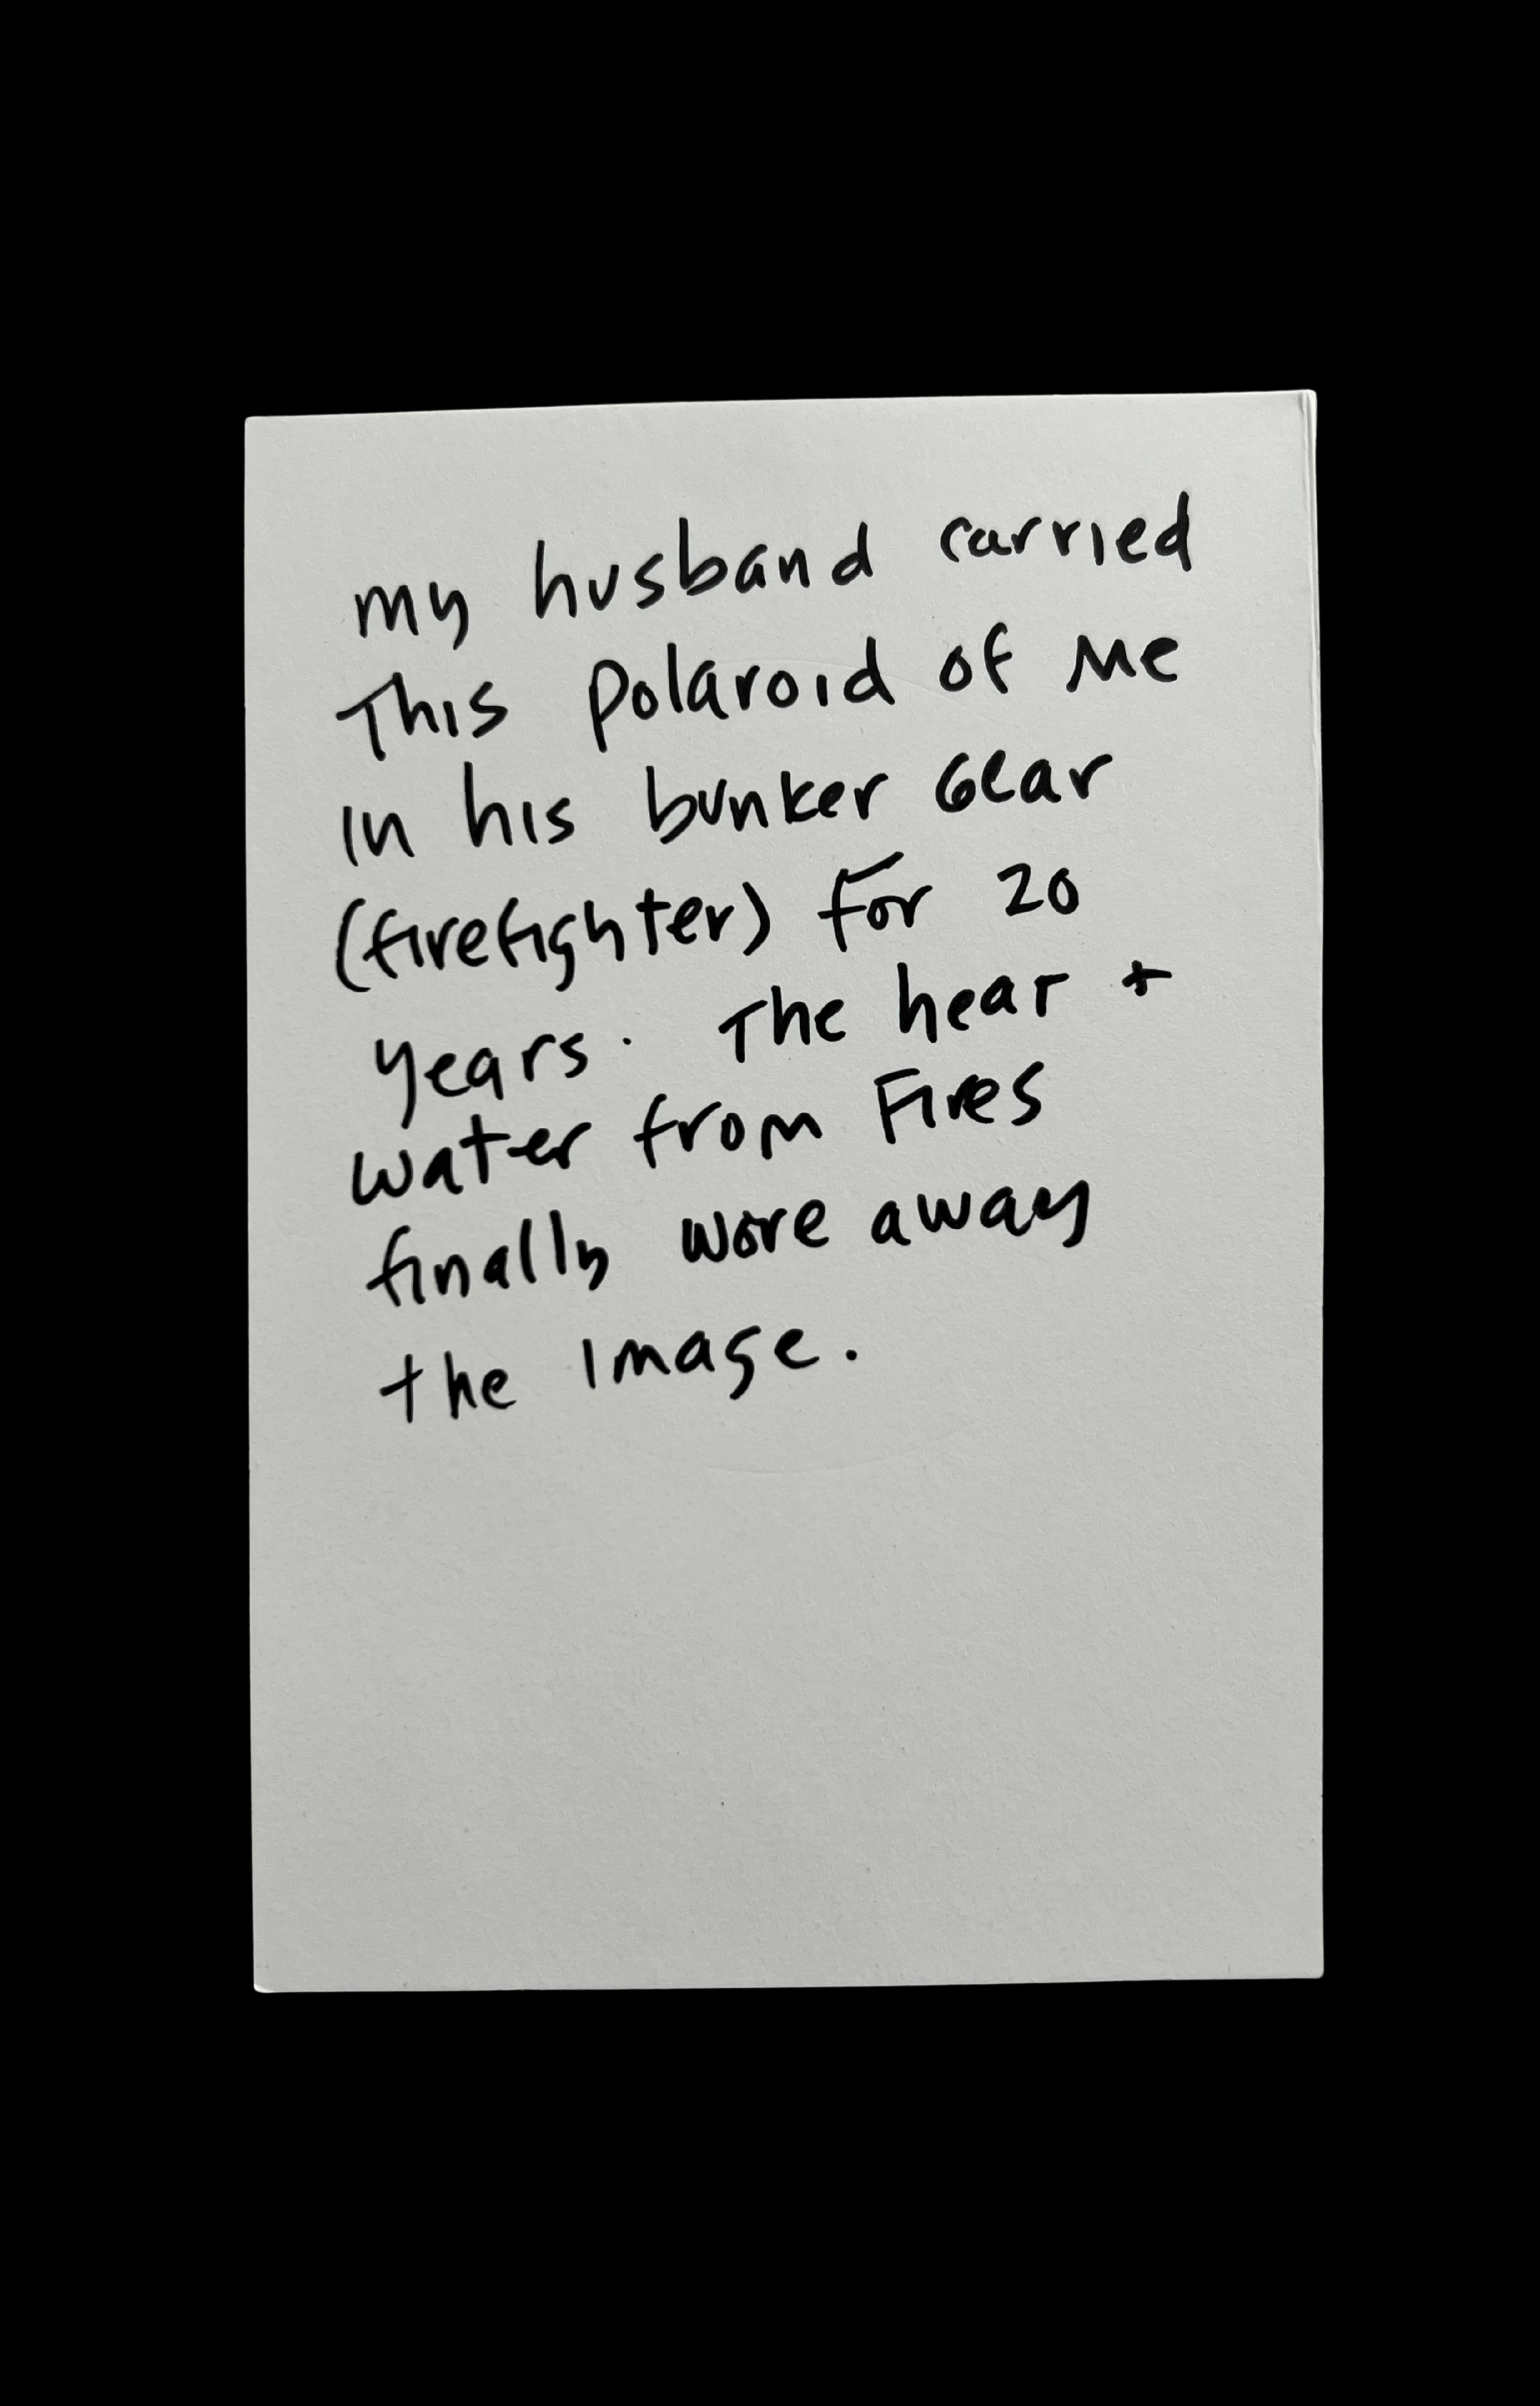 my husband carried
This polaroid of me
in his bunker Gear
(firefighter) for 20
years. The hear +
water from Fires
finally wore away
the image.